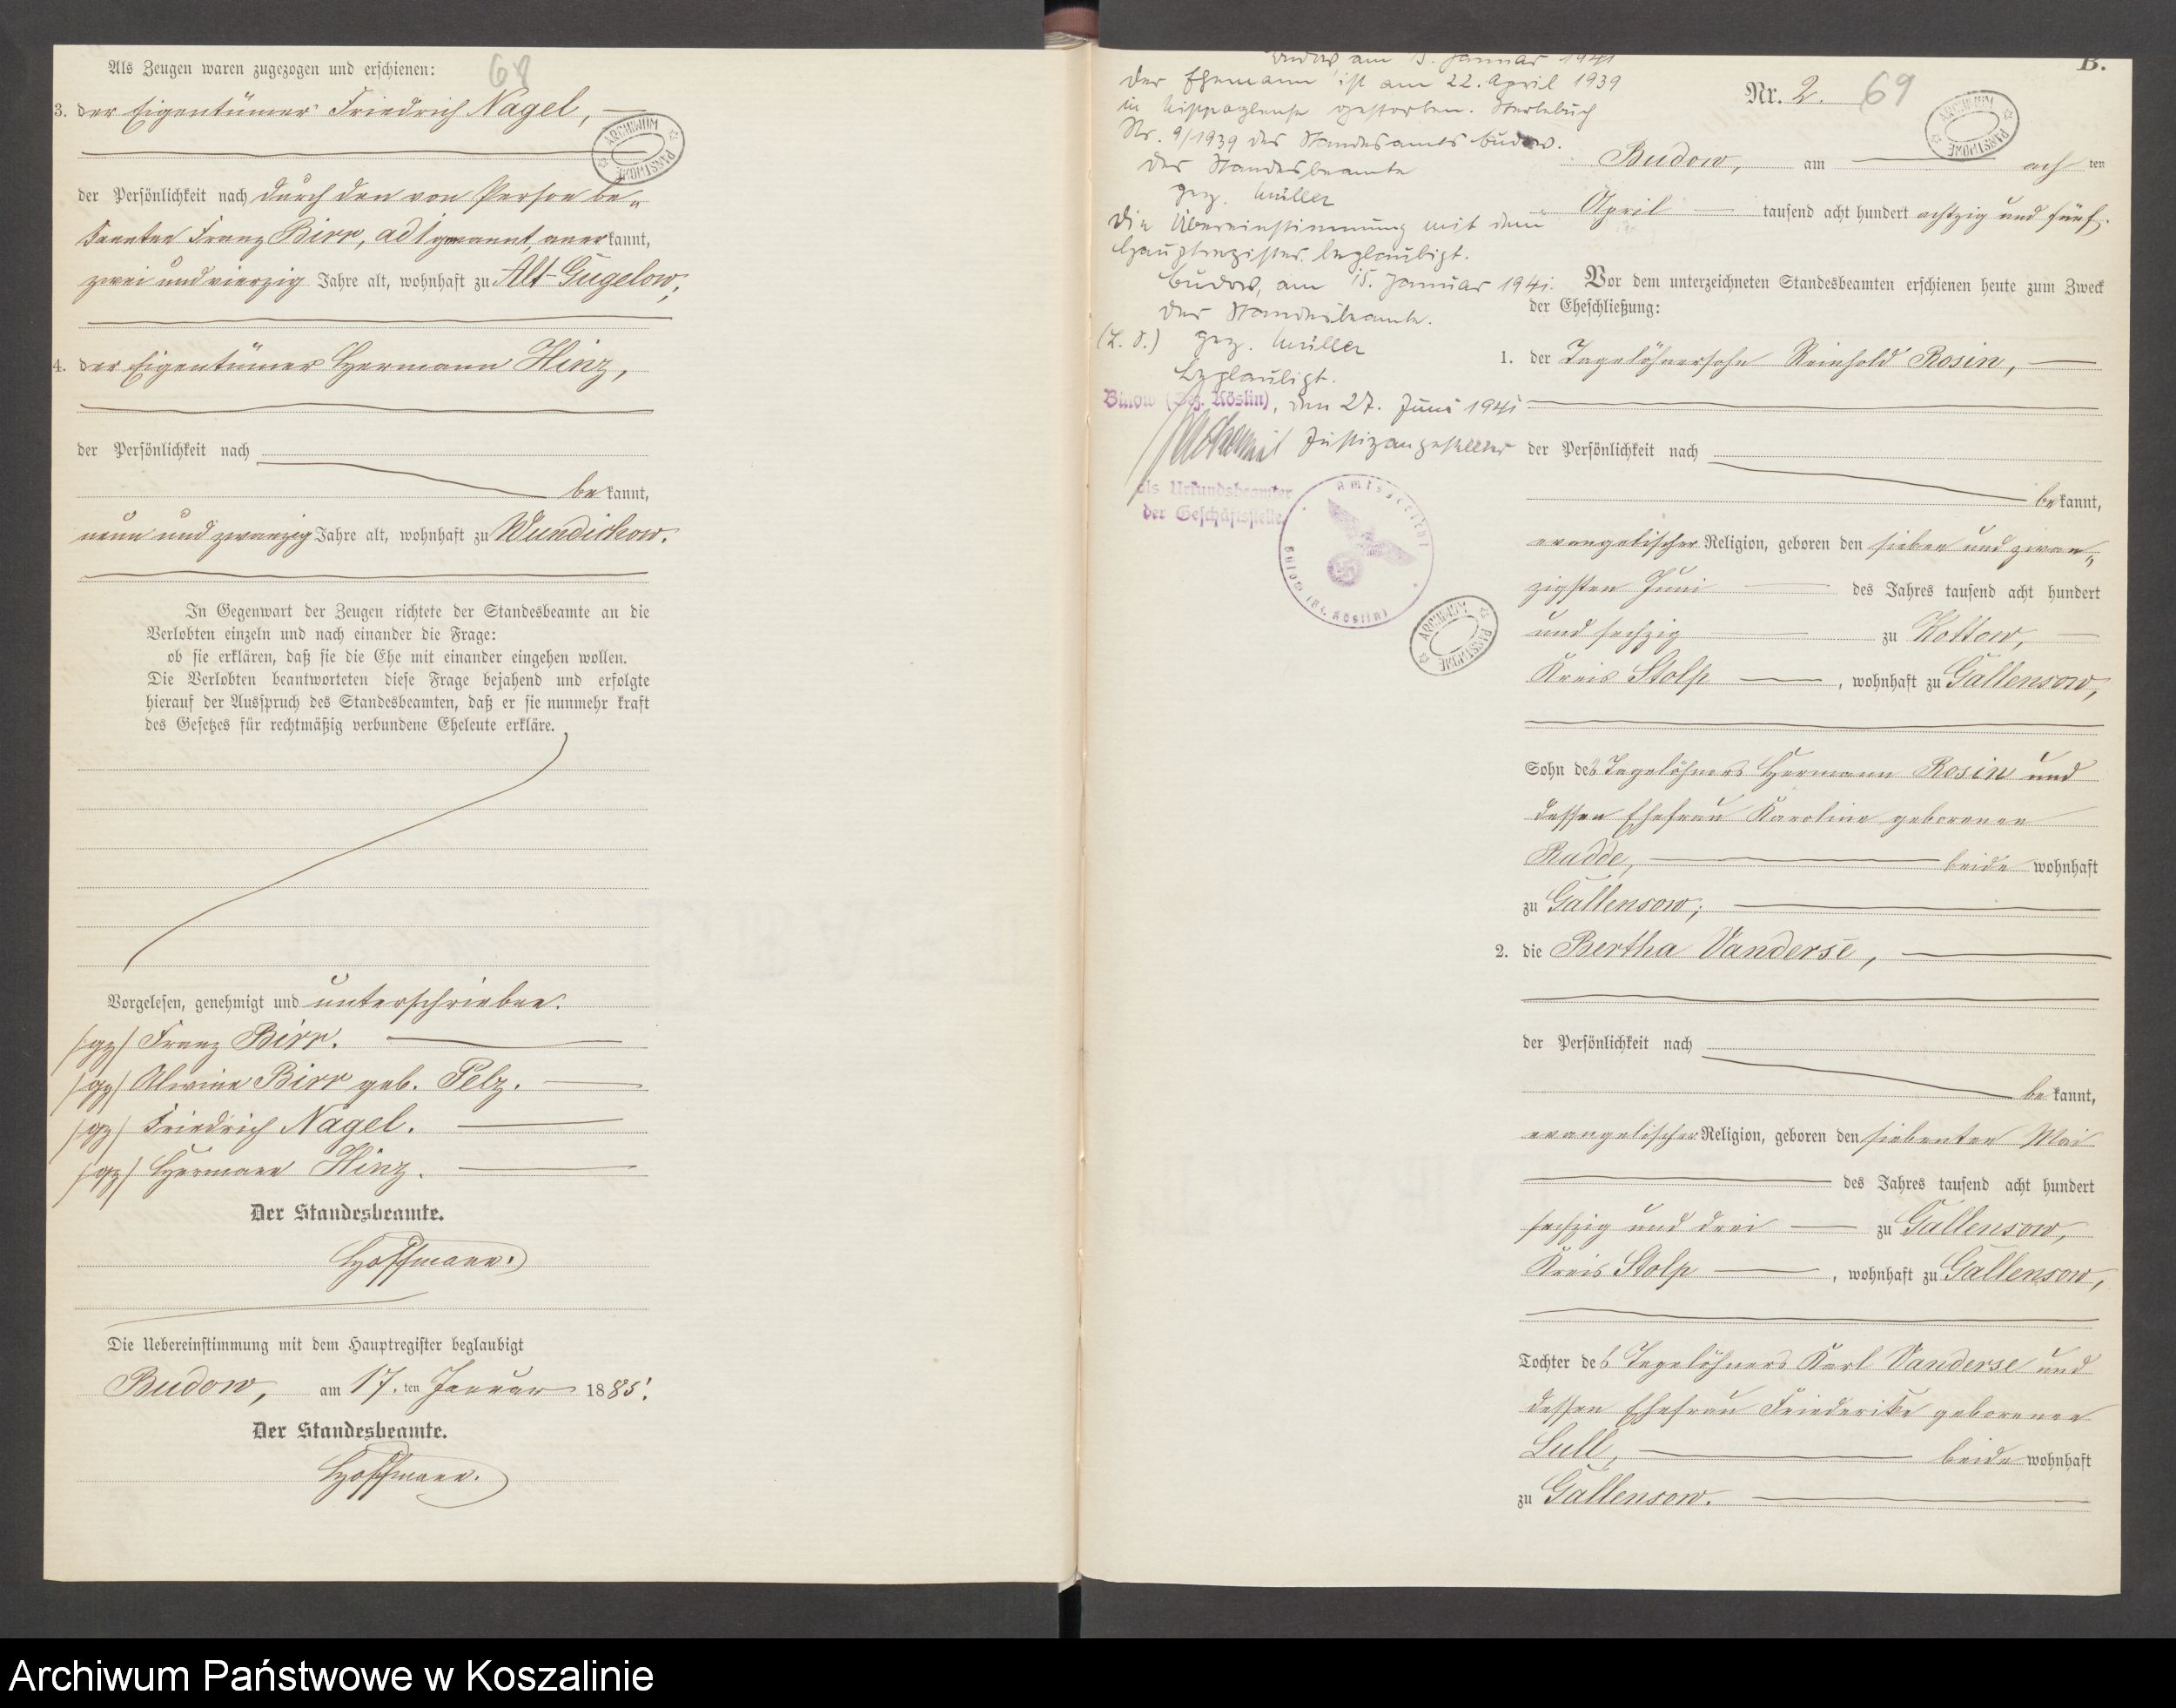 68
Als Zeugen waren zugezogen und erschienen:
3. der Eigentümer Friedrich Nagel,
ARCHIWUM PAŃSTWOWE
der Persönlichkeit nach durch den von Person be„
kannten Franz Birr, ad 1 genannt, anerkannt,
zwei und vierzig Jahre alt, wohnhaft zu Alt-Gugelow,
4. der Eigentümer Hermann Hinz,
der Persönlichkeit nach
bekannt,
neun und zwanzig Jahre alt, wohnhaft zu Wundichow.
In Gegenwart der Zeugen richtete der Standesbeamte an die
Verlobten einzeln und nach einander die Frage:
ob sie erklären, daß sie die Ehe mit einander eingehen wollen.
Die Verlobten beantworteten diese Frage bejahend und erfolgte
hierauf der Ausspruch des Standesbeamten, daß er sie nunmehr kraft
des Gesetzes für rechtmäßig verbundene Eheleute erkläre.
Vorgelesen, genehmigt und unterschrieben.
/gz/ Franz Birr.
/gz/ Alwine Birr geb. Pelz.
/gz/ Friedrich Nagel.
/gz/ Hermann Hinz.
Der Standesbeamte.
Hoffmann.
Die Uebereinstimmung mit dem Hauptregister beglaubigt
Budow, am 17. ten Januar 1885.
Der Standesbeamte.
Hoffmann.
Budow, am 15. Januar 1941
Der Ehemann ist am 22. April 1939
in gestorben. Sterbebuch
Nr. 9/1939 des Standesamts Budow.
Der Standesbeamte
gez. Müller
Die Übereinstimmung mit dem
Hauptregister beglaubigt.
Budow, am 15. Januar 1941.
Der Standesbeamte.
(L. S.) gez. Müller
Beglaubigt.
Bütow (Bez. Köslin), den 27. Juni 1941
Justizangestellter
als Urkundsbeamter
der Geschäftsstelle
Amtsgericht Bütow (Bz. Köslin)
ARCHIWUM PAŃSTWOWE
B.
Nr. 2. 69
ARCHIWUM PAŃSTWOWE
Budow, am acht ten
April tausend acht hundert achtzig und fünf.
Vor dem unterzeichneten Standesbeamten erschienen heute zum Zweck
der Eheschließung:
1. der Tagelöhnersohn Reinhold Rosin,
der Persönlichkeit nach
bekannt,
evangelischer Religion, geboren den sieben und zwan„
zigsten Juni des Jahres tausend acht hundert
und sechzig zu Kottow,
Kreis Stolp, wohnhaft zu Gallensow,
Sohn des Tagelöhners Hermann Rosin und
dessen Ehefrau Karoline geborenen
Radde, beide wohnhaft
zu Gallensow;
2. die Bertha Vanderse,
der Persönlichkeit nach
bekannt,
evangelischer Religion, geboren den siebenten Mai
des Jahres tausend acht hundert
sechzig und drei zu Gallensow,
Kreis Stolp, wohnhaft zu Gallensow,
Tochter des Tagelöhners Karl Vanderse und
dessen Ehefrau Friederike geborenen
Lull, beide wohnhaft
zu Gallensow.
Archiwum Państwowe w Koszalinie